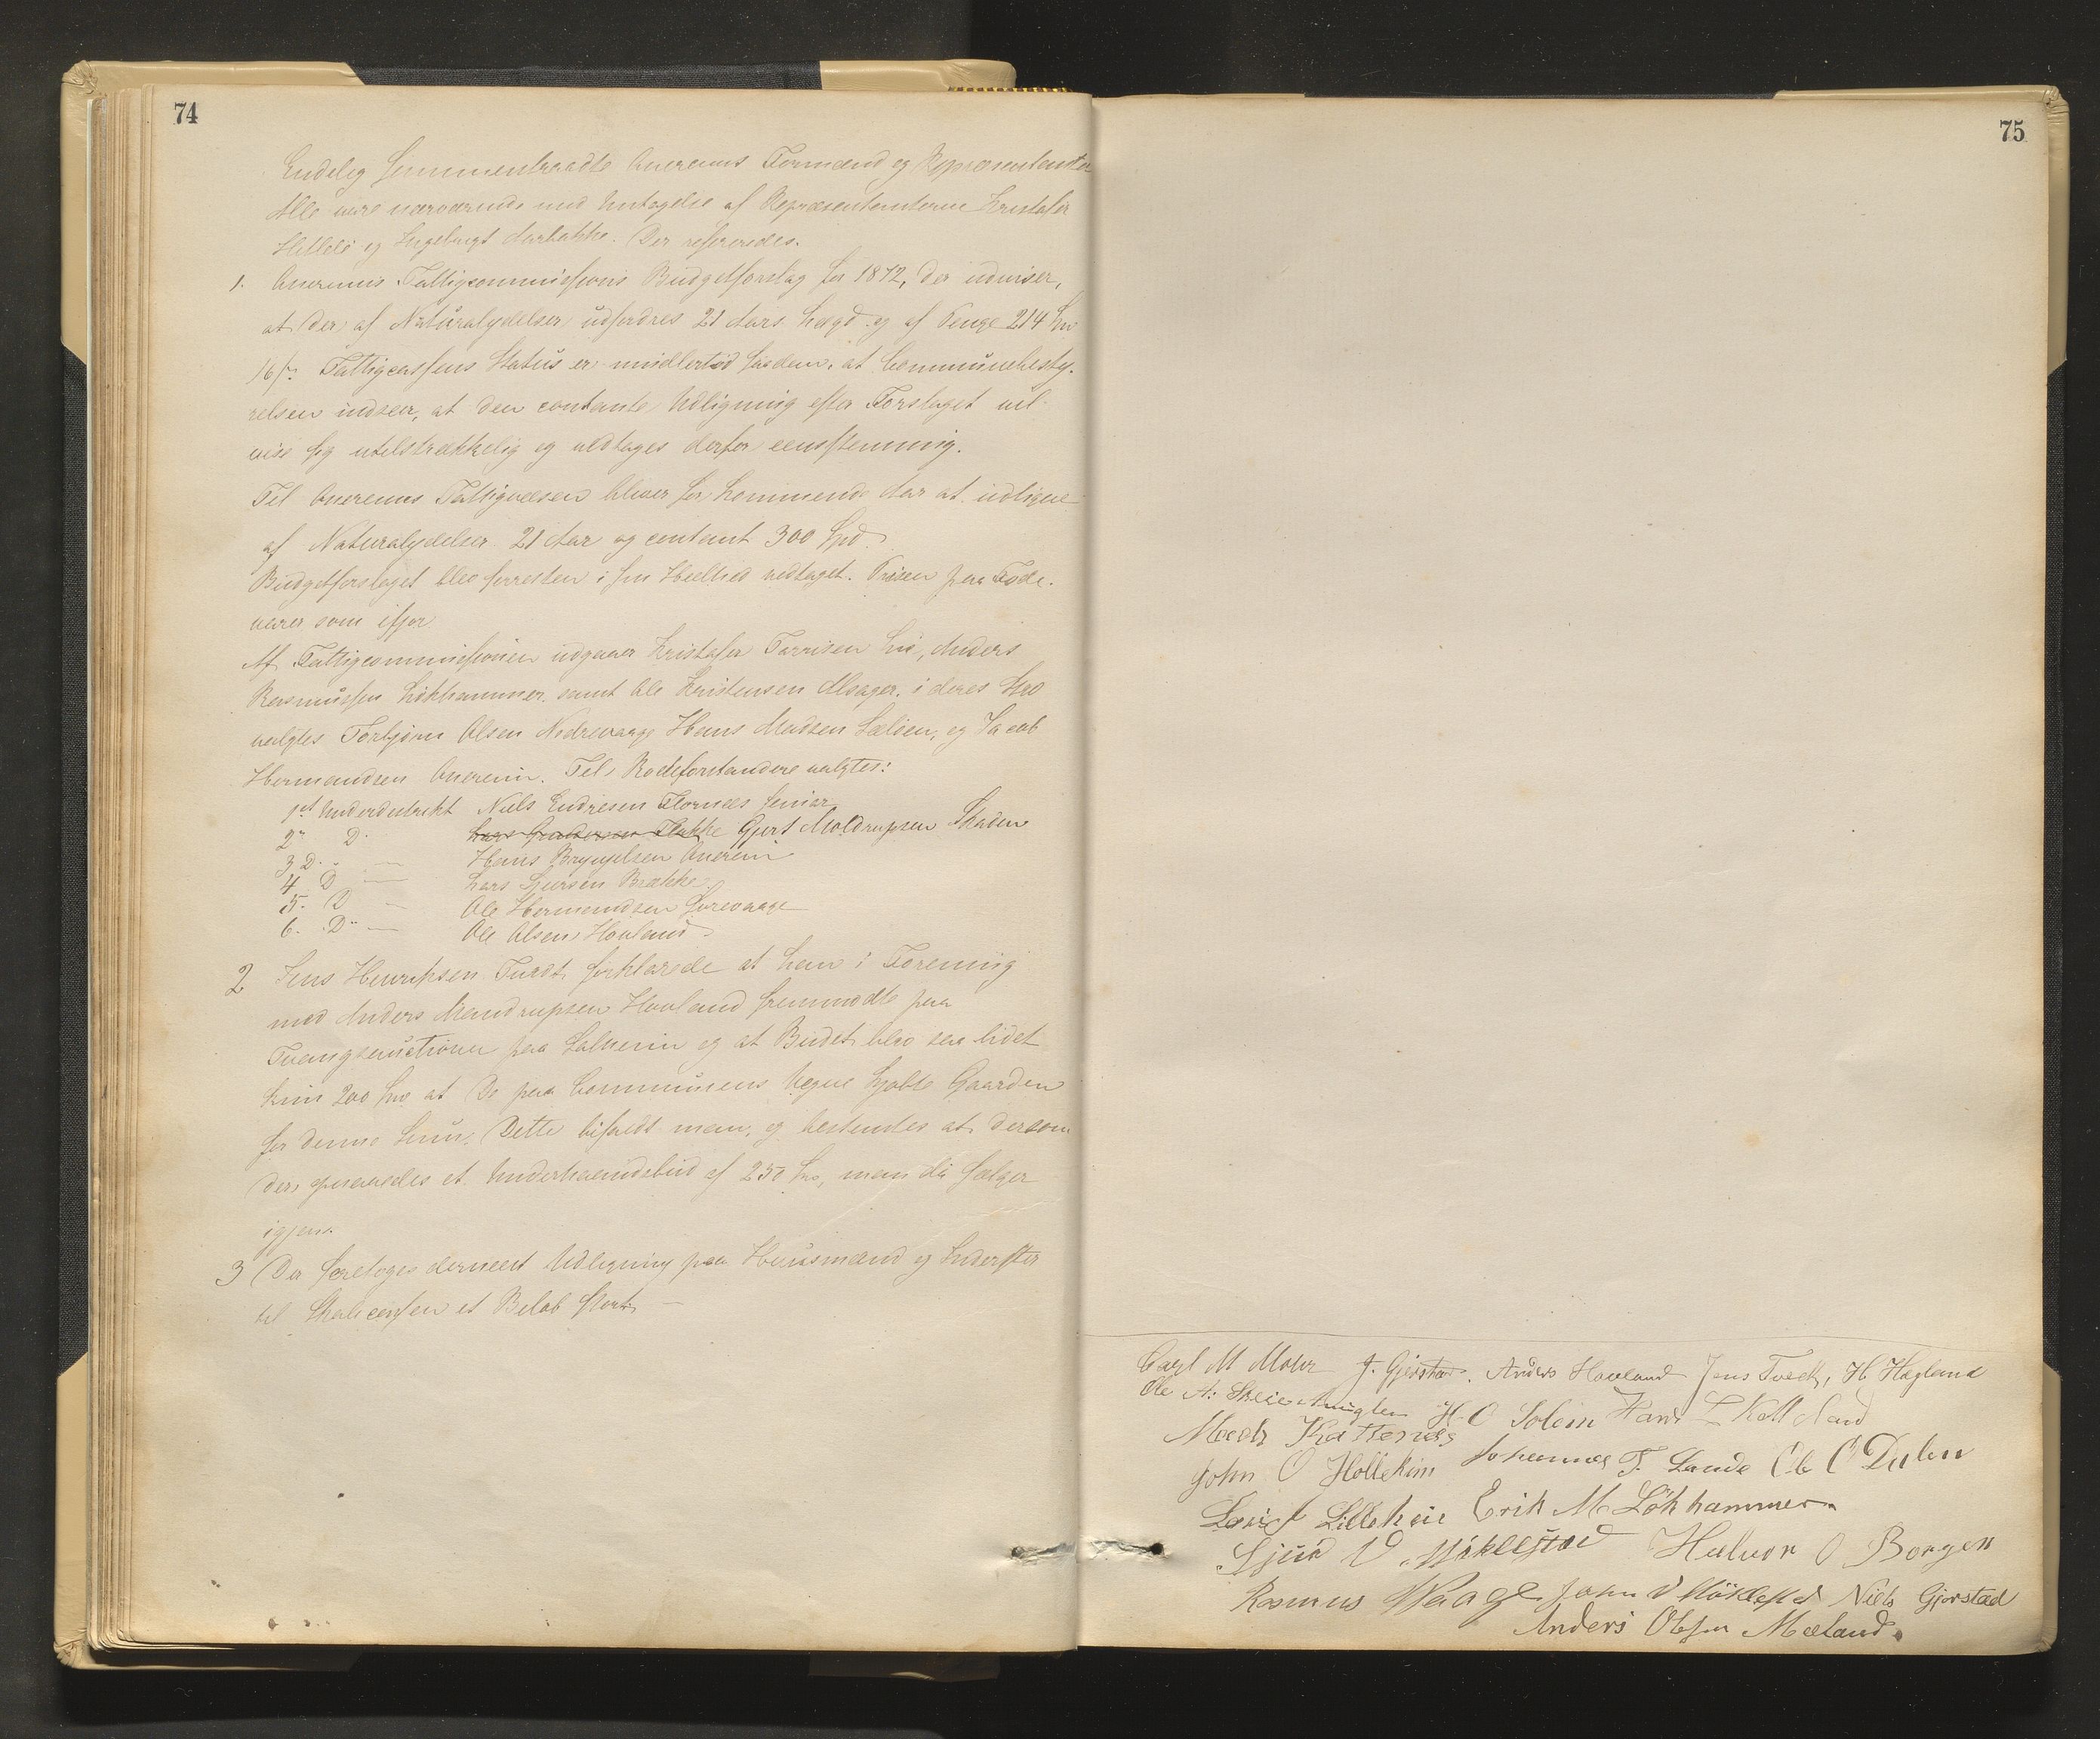 74
Endelig sammentraadte Oнerems Formænd og Repræsentanter
Alle vare nærværende med Undtagelse af Repræsentanterne Kristofer
og Ingebrigt Aarbakke. Der refereredes.
1. Fattigcommissions Budgetforslag for 1872, der udviser,
at der af Naturalydelser udfordres 21 Aars Lægd og af Penge 214 Spd
16 s. Fattigcassens Status er imidlertid saadan, at Communebesty-
relsen indseer, at den contante Udligning efter Forslaget vil
vise sig utilstrækkelig og vedtages derfor eenstemmig.
Til Fattigvæsen bliver for kommende Aar at udligne
af Naturalydelser 21 Aar og contant 300 Spd.
Budgetforslaget blev forresten i sin Heelhed vedtaget. Prisen paa Føde-
varer som ifjor
Af Fattigcommissionen udgaaer Kristofer Lie, Anders
Rasmussen Løkhammer samt Ole Kristensen Alsager, i deres Sted
valgtes Torbjørn Olsen Nedrevaage Hans Madsen Sælden, og Jacob
Hermandsen Til Rodeforstandere valgtes:
1ste Underdistrikt Niels Endresen Flornes senior
2" D. Gjert Moldrupsen Skaden
3 D. — Hans Brynjelsen
4 D — Lars Sjursen Brække
5. D — Ole Hermundsen Sørevaage
6. D" — Ole Olsen Hovland
2 Jens Henriksen Tvedt forklarede at han i Forening
med Anders Mandrupsen Hovland fremmødte paa
Tvangsauctionen paa og at Budet blev saa lidet
kun 200 Spd at De paa Communens Vegne kjøbte Gaarden
for denne Sum. Dette bifaldt man, og bestemtes at dersom
der opnaaedes et Underhaandsbud af 250 Spd, man da sælger
igjen.
3 Der foretoges dernæst Udligning paa Huusmænd og Inderster
til Skolecassen et Beløb stort —
75
Carl M Mohr J. Gjerstad. Anders Havland Jens Tvedt, H Hægland
Ole A: Skeie H. O Solem Hans L Kalland
Mads Kattenes
John O Hollekim Johannes T. Lande Ole O Dalen
Lilleheie Erik M Lökhammer.
Sjur V Mökelstad Halvor O Borgen
Rasmus Waage John V Mökelstad Niels Gjerstad
Anders Olsen Mæland.